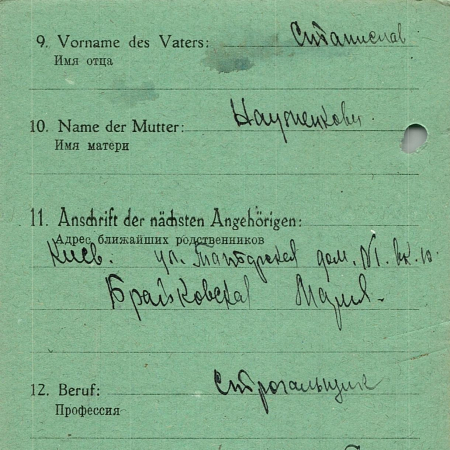 9. Vorname des Vaters: Станислав
Имя отца
10. Name der Mutter:
Имя матери
11. Anschrift der nächsten Angehörigen:
Адрес ближайших родственников
Киев. ул. дом. №1. кв. 10.
Мария.
12. Beruf: Строгальщик
Профессия